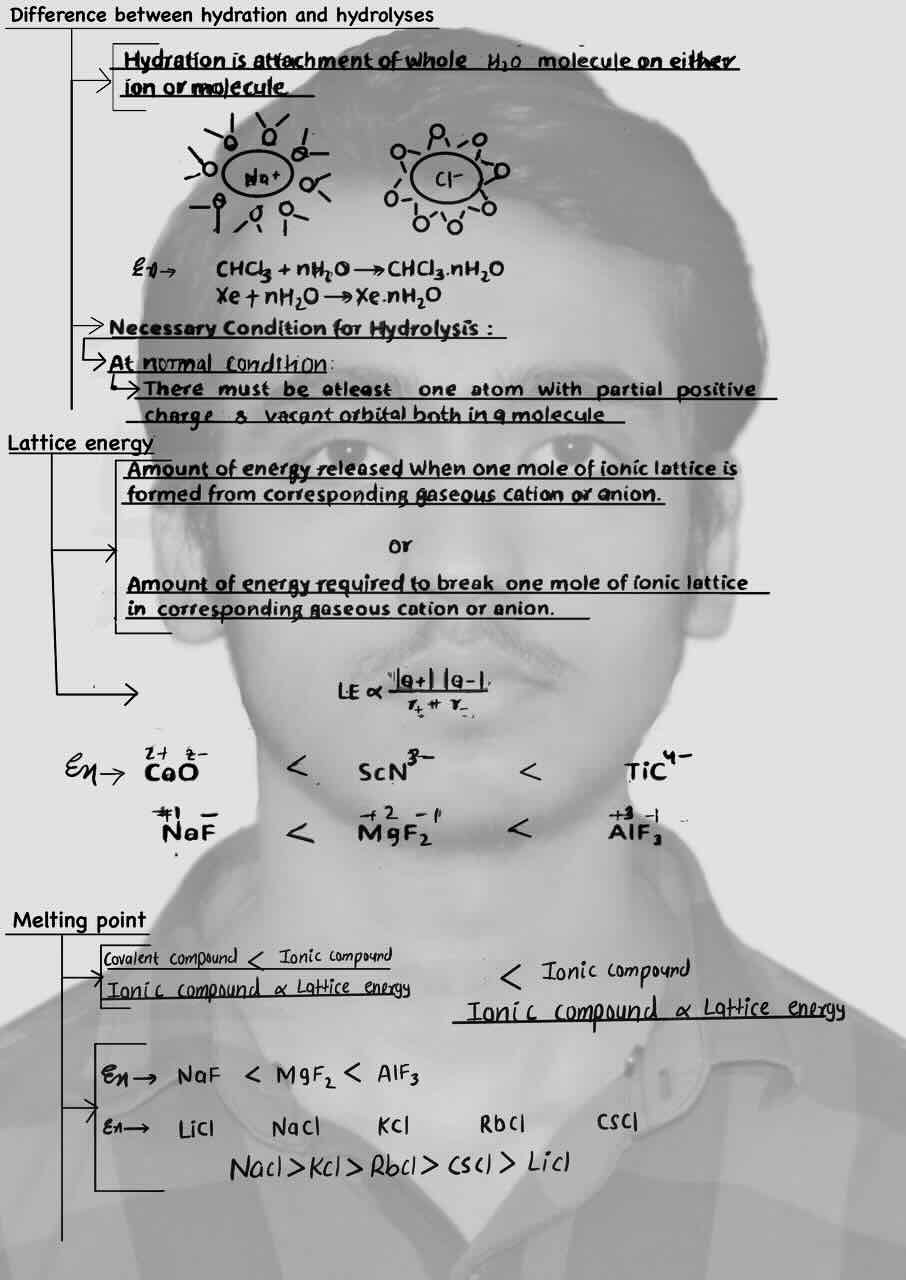 Difference between hydration and hydrolyses
Hydration is attachment of whole H₂O molecule on either
ion or molecule
Na⁺ Cl⁻
Ex→ CHCl₃ + nH₂O → CHCl₃.nH₂O
Xe + nH₂O → Xe.nH₂O
Necessary Condition for Hydrolysis :
At normal condition:
There must be atleast one atom with partial positive
charge & vacant orbital both in a molecule
Lattice energy
Amount of energy released when one mole of ionic lattice is
formed from corresponding gaseous cation or anion.
or
Amount of energy required to break one mole of ionic lattice
in corresponding gaseous cation or anion.
LE ∝ |q+| |q-| / r₊ + r₋
2+ 2-
Ex→ CaO < ScN³⁻ < TiC⁴⁻
+1 - +2 -1 +3 -1
NaF < MgF₂ < AlF₃
Melting point
Covalent compound < Ionic compound
Ionic compound ∝ Lattice energy
< Ionic compound
Ionic compound ∝ Lattice energy
Ex→ NaF < MgF₂ < AlF₃
Ex→ LiCl NaCl KCl RbCl CsCl
NaCl > KCl > RbCl > CsCl > LiCl